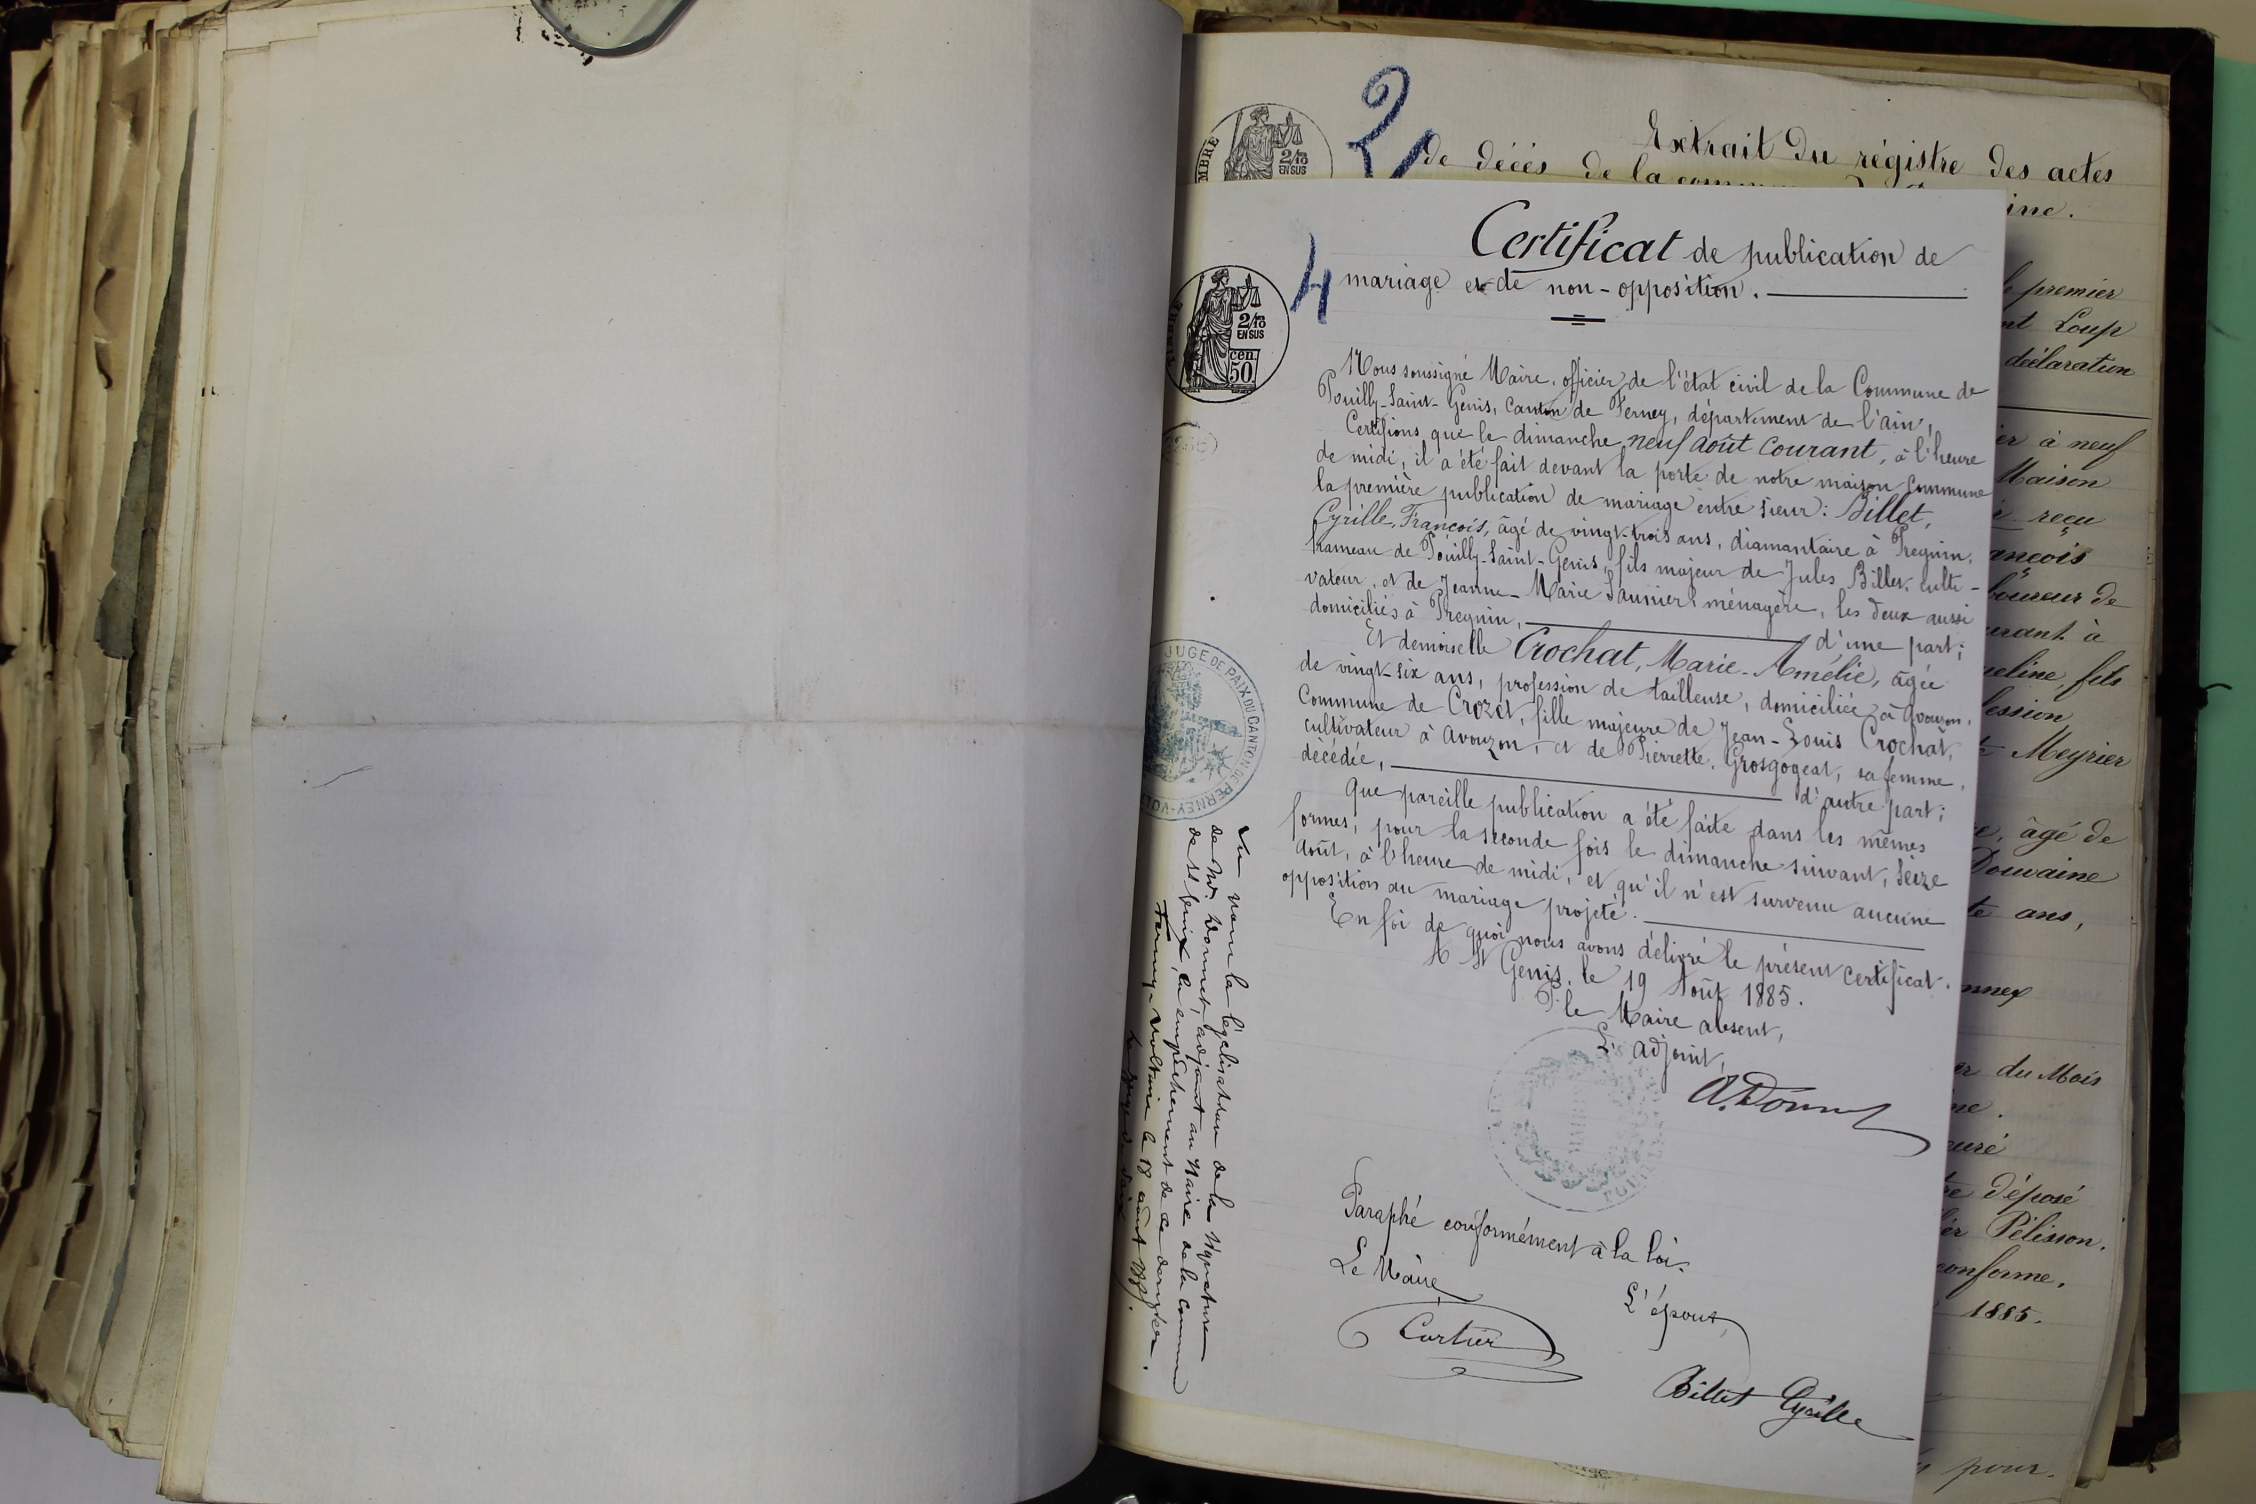 2
Extrait du régistre des actes
de décès de la
ine.
4
Certificat de publication de
mariage et de non-opposition.
2/10
EN SUS
2/10
EN SUS
cen.
50
Nous soussigné Maire, officier de l'état civil de la Commune de
Pouilly-Saint-Genis, canton de Ferney, département de l'ain,
Certifions que le dimanche neuf août courant, à l'heure
de midi, il a été fait devant la porte de notre maison commune
la première publication de mariage entre sieur: Billet,
Cyrille, François, âgé de vingt-trois ans, diamantaire à Pregnin,
hameau de Pouilly-Saint-Genis, fils majeur de Jules Billet, culti-
vateur, et de Jeanne-Marie Saunier, ménagère, les deux aussi
domiciliés à Pregnin, d'une part;
Et demoiselle Crochat, Marie-Amélie, âgée
de vingt-six ans, profession de tailleuse, domiciliée à Avouzon,
Commune de Crozet, fille majeure de Jean-Louis Crochat,
cultivateur à Avouzon, et de Pierrette, Grosgogeat, sa femme,
décédée, d'autre part;
Que pareille publication a été faite dans les mêmes
formes, pour la seconde fois le dimanche suivant, seize
août, à l'heure de midi, et qu'il n'est survenu aucune
opposition au mariage projeté.
En foi de quoi nous avons délivré le présent certificat.
A St Genis, le 19 Août 1885.
P. le Maire absent,
L'adjoint,
A. Donnet
Paraphé conformément à la loi.
Le Maire,
L'époux,
Cartier
Billet Cyrille
JUGE DE PAIX DU CANTON DE FERNEY-VOL
Vu pour la légalisation de la signature
de Mr. Donnet, adjoint au Maire de la Commune
de St Genix, en empêchement de ce dernier.
Ferney-Voltaire le 19 août
Le Juge de Paix
premier
nt Loup
déclaration
er à neuf
Maison
reçu
ançois
boureur de
urant à
ueline, fils
fession
Meyrier
, âgé de
Douvaine
te ans,
nnex
er du Mois
ne.
curé
re déposé
Pélisson.
conforme.
1885.
pour.